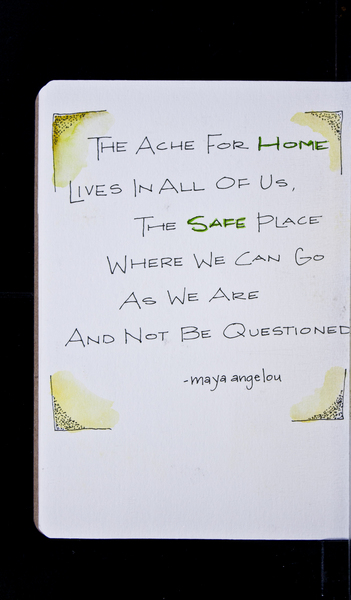 The Ache For Home
Lives In All Of Us,
The Safe Place
Where We Can Go
As We Are
And Not Be Questioned
-maya angelou